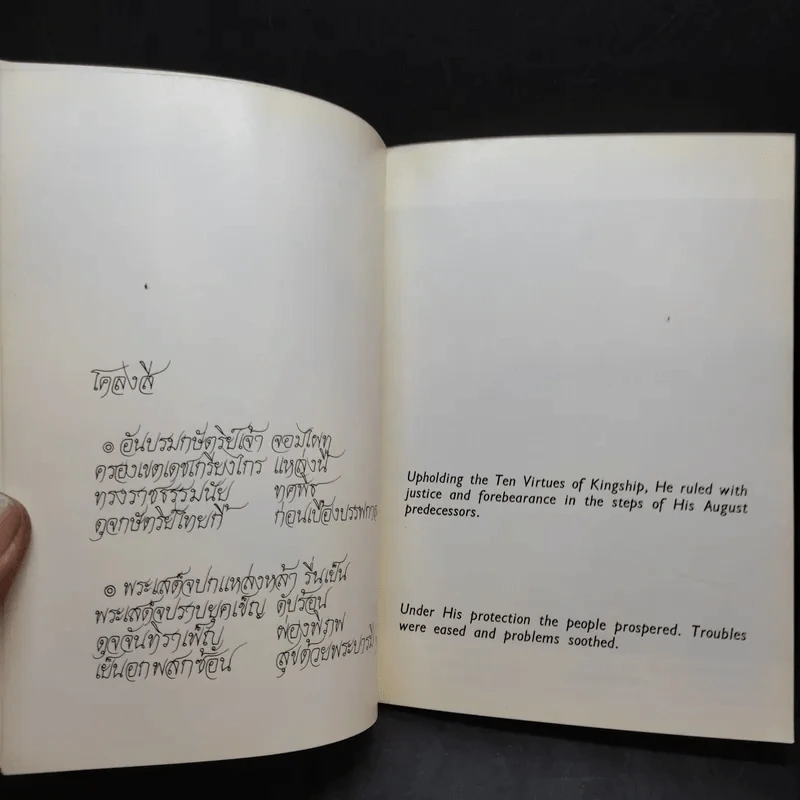 โคลงสี่
๏ อันบรมกษัตริย์เจ้า จอมไผท
ครองเขตเดชเกรียงไกร แหล่งนี้
ทรงราชธรรมนัย ทศพิธ
ดุจกษัตริย์ไทยกี้ ก่อนเบื้องบรรพกาล
๏ พระเสด็จปกแหล่งหล้า รื่นเย็น
พระเสด็จปราบยุคเข็ญ ดับร้อน
ดุจจันทิราเพ็ญ ผ่องพิภพ
เย็นอกพสกซ้อน สุขด้วยพระบารมี
Upholding the Ten Virtues of Kingship, He ruled with
justice and forebearance in the steps of His August
predecessors.
Under His protection the people prospered. Troubles
were eased and problems soothed.